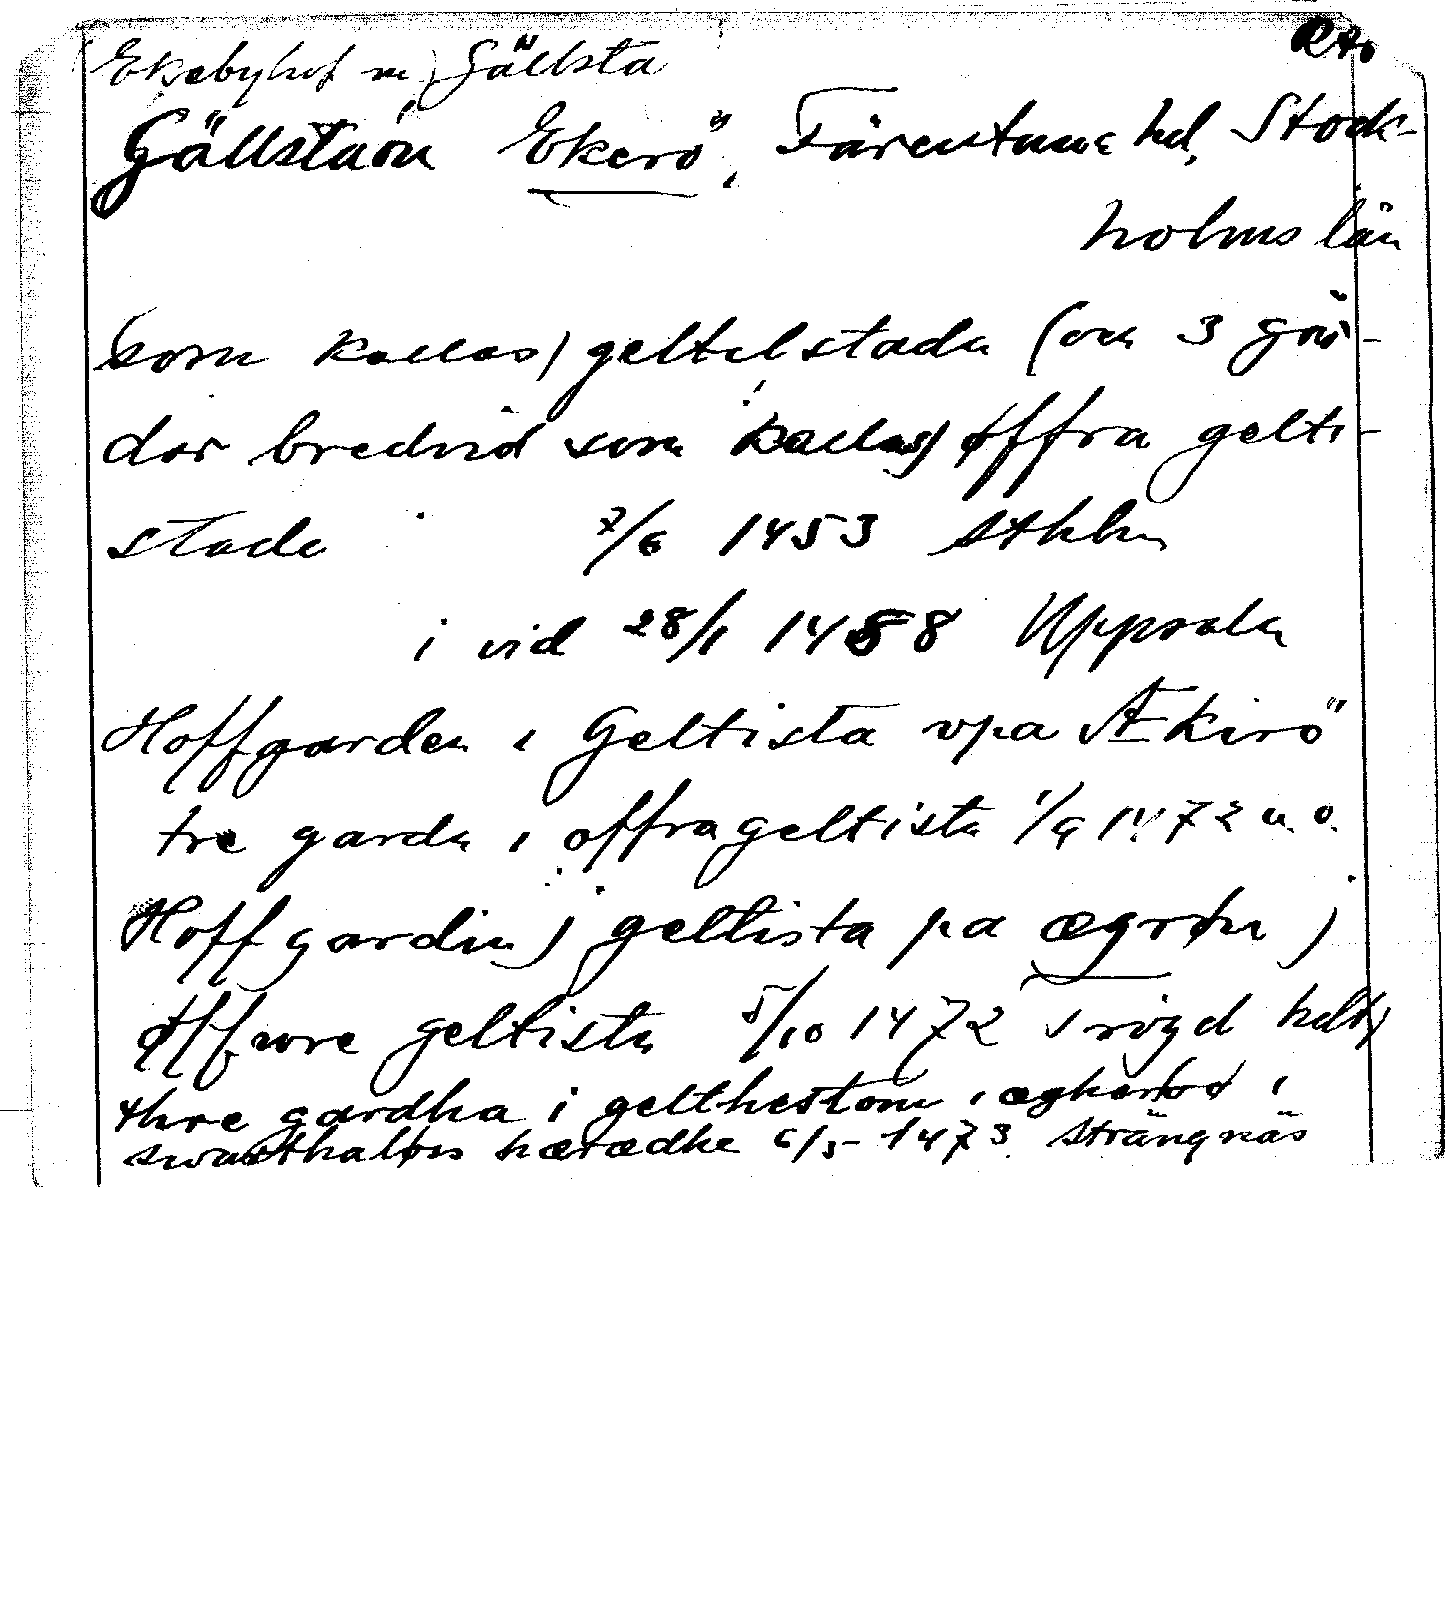 RA
Ekebyhof m Gällsta
Gällstaön Ekerö, Färentuna hd, Stock-
holms län
(som kallas) geltelstada (om 3 går-
dar bredvid som kallas) øffra gelti-
stada 7/6 1453 Sthlm
i vid 28/1 1488 Uppsala
Hoffgarden i Geltista vpa Ækirö
tre garda i offrageltista 1/9 1472 u.o.
Hoffgardin j geltista pa ægrøn j
øffwre geltista 5/10 1472
thre gardha i gelthestom i i
swarthaløs hæradhe 6/5 1473 Strängnäs